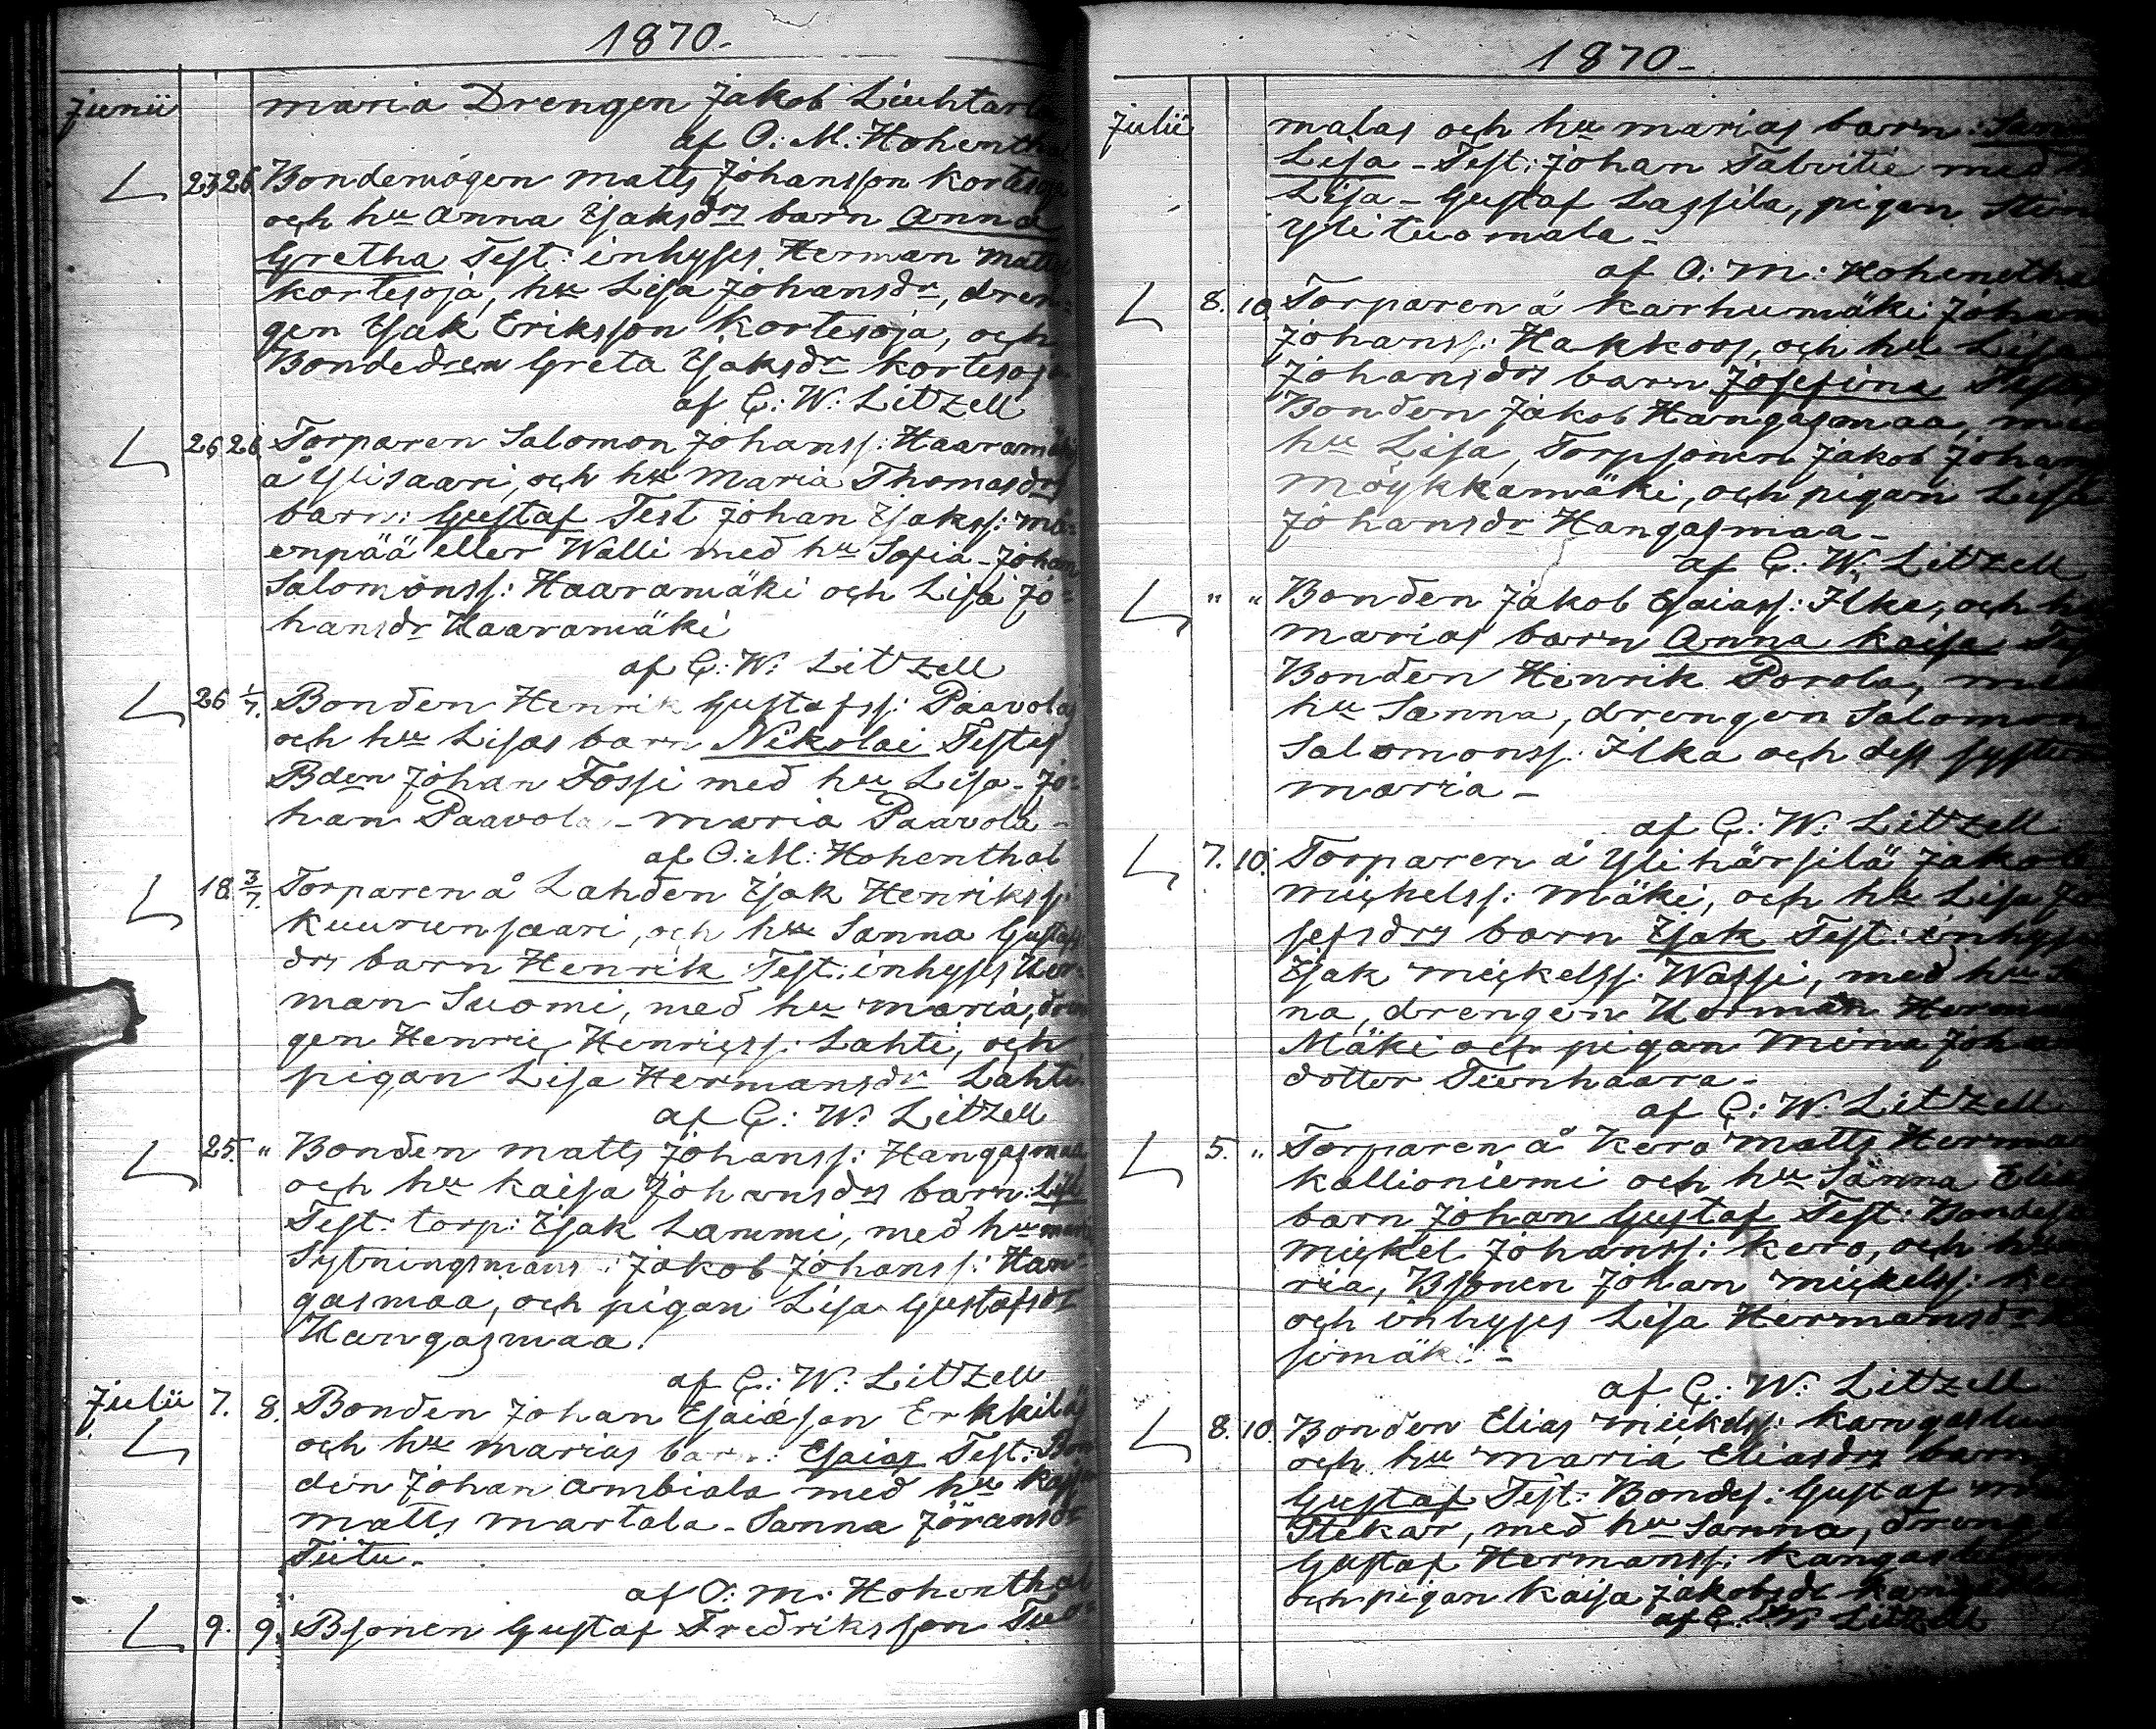 1870.
Junii maria Drengen Jakob Liuhtarla
af O: M: Hohenthal
23 26 Bondemågen Matts Johansson Kortesoja
och hu Anna Isaksdrs barn Anna
Gretha Test: inhyses Herman Matts
Kortesoja, hu Lisa Johansdr, dren-
gen Isak Eriksson Kortesoja, och
Bondedren Greta Isaksdr Kortesoja
af C: W: Litzell
26 26 Torparen Salomon Johanss: Haaramäki
å Ylisaari, och hu Maria Thomasdrs
barn: Gustaf Test Johan Isakss: Mä-
enpää eller Walli med hu Sofia - Johan
Salomonss: Haaramäki och Lisa Jo-
hansdr Haaramäki
af C: W: Litzell
26 1/7. Bonden Henrik Gustafss: Paavolas
och hu Lisas barn Nikolai Testes
Bden Johan Fossi med hu Lisa - Jo-
han Paavola - Maria Paavola -
af O: M: Hohenthal
18 3/7. Torparen å Lahden Isak Henrikss:
Kuurunsaari, och hu Sanna Gustafs
drs barn Henrik Test: inhyses Her-
man Suomi, med hu Maria, dren
gen Henric Henricss: Lahti, och
pigan Lisa Hermansdr Lahti
af C: W: Litzell
25. " Bonden Matts Johanss: Hangasmaa
och hu Kaisa Johansdrs barn: Lisa
Test: torp: Isak Lammi, med hu Maria
Sytningsmans: Jakob Johanss: Han-
gasmaa, och pigan Lisa Gustafsdr
Hangasmaa.
af C: W: Litzell
Julii 7. 8. Bonden Johan Esaiasson Erkkilas
och hu Marias barn: Esaias Test: Bon
den Johan Ambiala med hu Kajsa
Matts Martala - Sanna Jöransdr
Tiitu.
af O: M: Hohenthal
9. 9. Bsonen Gustaf Fredriksson Tuo-
1870 -
Julii malas och hu Marias barn: Sanna
Lisa - Test: Johan Talvitie med hu
Lisa - Gustaf Lassila, pigan Stina
Ylituomala -
af O: M: Hohenthal
8. 10. Torparen å Karhumäki Johan
Johanss: Hakkoos, och hu Lisa
Johansdrs barn Josefina Testes
Bonden Jakob Hangasmaa, med
hu Lisa, Torpsonen Jakob Johans
Möykkämäki, och pigan Lisa
Johansdr Hangasmaa -
af C: W: Litzell
" " Bonden Jakob Esaiass: Ilka, och hu
Marias barn Anna Kaisa Test
Bonden Henrik Porola, med
hu Sanna, drengen Salomon
Salomonss: Ilka och dess syster
Maria -
af C: W: Litzell
7. 10. Torparen å Ylihärsilä Jakob
Mickelss: Mäki, och hu Lisa Jo
sefsdrs barn Isak Test: inhyses
Isak Mickelss: Wassi, med hu
na, drengen Herman Herman
Mäki och pigan Mina Johans
dotter Tienhaara -
af C: W: Litzell
5. " Torparen å Kero Matts Herman
Kallioniemi och hu Sanna Elias
barn Johan Gustaf Test: Bondes
Mickel Johanss: Kero, och hu Ma
ria, Bsonen Johan Mickelss: Kero
och inhyses Lisa Hermansdr
simäki -
af C: W: Litzell
8. 10. Bonden Elias Mickelss: Kangasluoma
och hu Maria Eliasdrs barn
Gustaf Test: Bondes: Gustaf
Stekar, med hu Sanna, drengen
Gustaf Hermanss: Kangasluoma
och pigan Kaisa Jakobsdr Kangasluoma
af C: W: Litzell